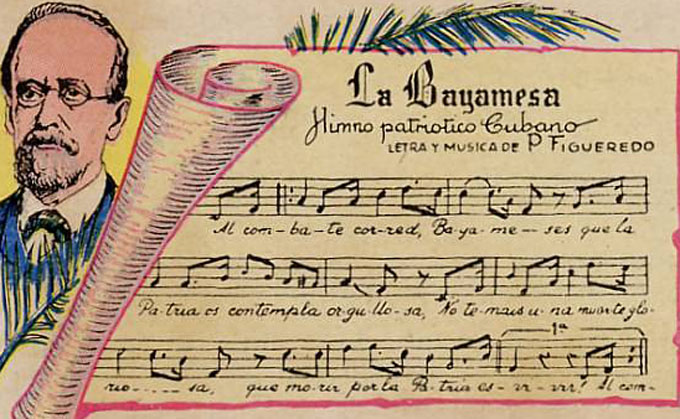 La Bayamesa
Himno patriotico Cubano
LETRA Y MUSICA DE P FIGUEREDO
Al com-ba-te cor-red, Ba-ya-me--ses que la
Pa-tria os contempla or-gu-llo-sa, No te-mais u-na muerte glo-
1a
rio-----sa, que mo-rir por la Pa-tria es-vi-vir! Al com-